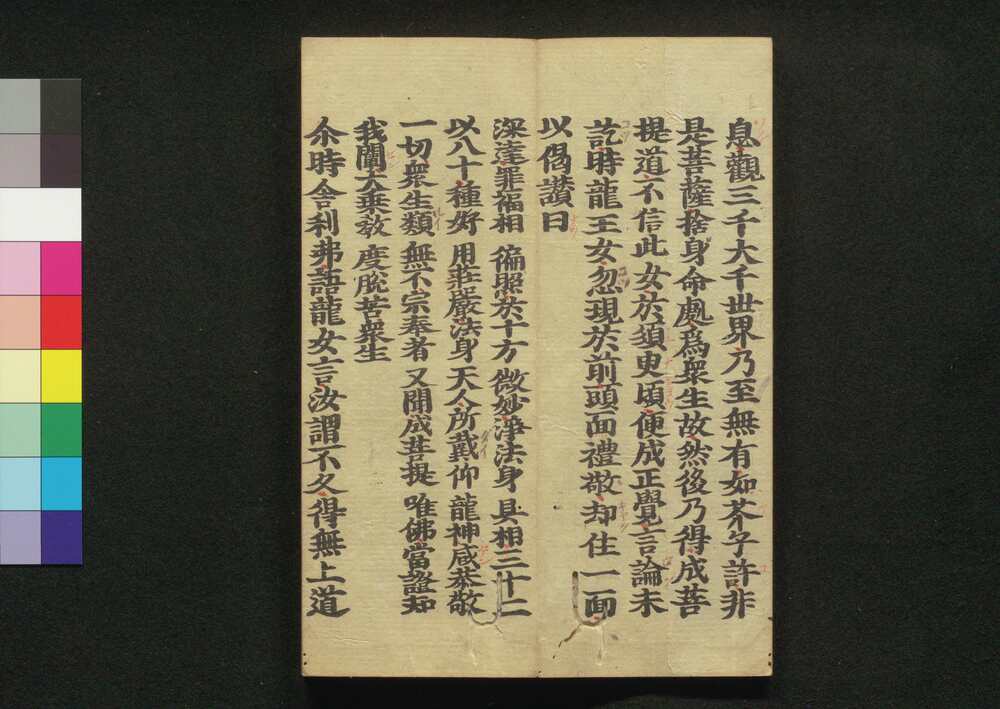 息觀三千大千世界乃至無有如芥子許非
是菩薩捨身命處爲衆生故然後乃得成菩
提道不信此女於須臾頃便成正覺言論未
訖時龍王女忽現於前頭面禮敬却住一面
以偈讃曰
深達罪福相 徧照於十方 微妙淨法身 具相三十二
以八十種好 用莊嚴法身 天人所戴仰 龍神咸恭敬
一切衆生類 無不宗奉者 又聞成菩提 唯佛當證知
我闡大乗教 度脫苦衆生
尒時舎利弗語龍女言汝謂不久得無上道